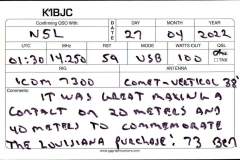 K1BJC
Confirming QSO With
DATE
DAY
MONTH
YEAR
N5L
27
04
2022
UTC
MHz
RST
MODE
WATTS OUT
QSL
01:30
14.250
59
USB
100
TNX
RIG
ANTENNA
ICOM 7300
COMET-VERTICAL 38'
Comments:
IT WAS GREAT MAKING A
CONTACT ON 20 METERS AND
40 METERS TO COMMEMORATE
THE LOUISIANA PURCHASE! 73 BEN